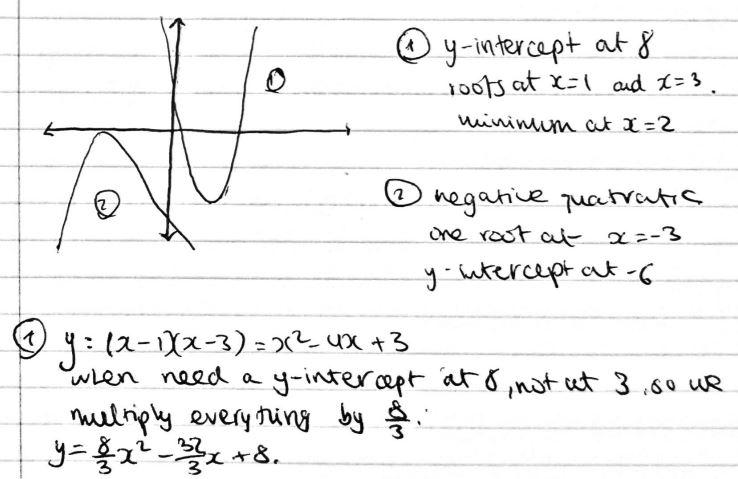 ① y-intercept at 8
roots at x=1 and x=3.
minimum at x=2
①
②
② negative quatratic
one root at x=-3
y-intercept at -6
① y=(x-1)(x-3)=x²-4x+3
when need a y-intercept at 8, not at 3, so we
multiply everything by 8/3.
y=8/3x²-32/3x+8.